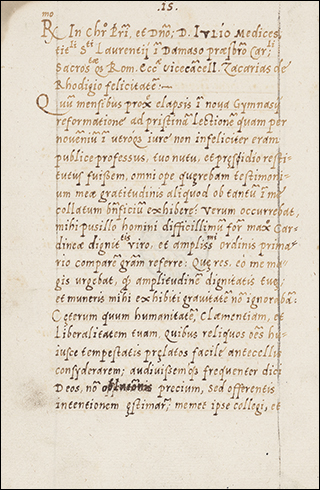 .15.
mo
Rx In Chrō Prī, et Dnō; D. IVLIO Medices,
tit̄ Stī Laurentij ī Damaso præsbr̄o Car.li
Sacros.tæ Rom. Ecc.æ vicecācell. Zacarias de
Rhodigio felicitatē:~
Quū mensibus prox.e elapsis ī nova Gymnasij
reformatione ad pristinā lectionē quam per
noveniū ī utroq; iure non infeliciter eram
publice professus, tuo nutu, et præsidio resti-
tutus fuissem, omni ope quęrebam testimoni-
um meæ gratitudinis aliquod ob tantū ī me
collatum bn̄ficiū exhibere: Verum occurrebat,
mihi pusillo homini difficillimū for max Car-
dineæ dignit.tis viro, et ampliss.i ordinis prima-
rio comparē grām referre: Quę res. eo me ma-
gis urgebat, q̃ amplitudinē dignitatis tuæ,
et muneris mihi exhibiti gravitatē nō ignorabā:
Cęterum quum humanitatē, Clæmentiam, et
Liberalitatem tuam, Quibus reliquos oēs hu-
iusce tempestatis prælatos facile antecellis
consyderarem; audivissemq; frequenter dici
Deos, nō oblationis precium, sed offerentis
intentionem ęstimar̄; memet ipse collegi, et